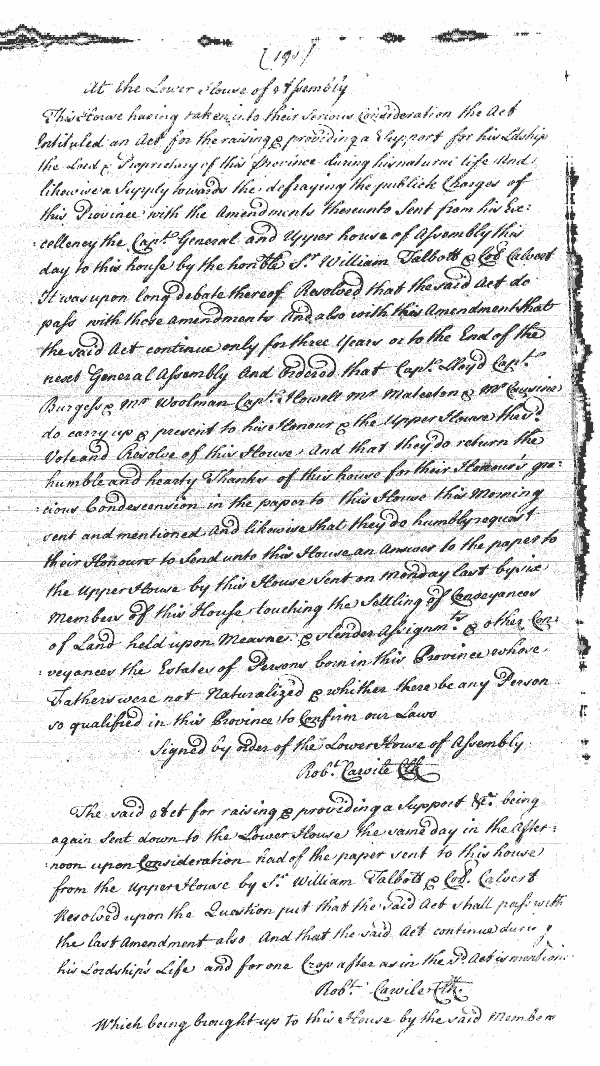 [191]
At the Lower House of Assembly
This House having taken into their serious Consideration the Act
Intituled an Act for the raising & providing a Support for his Ldship
the Lord & Proprietary of this Province during his natural life And
likewise a Supply towards the defraying the publick Charges of
this Province with the Amendments thereunto Sent from his Exe:
:cellency the Capt. General and Upper house of Assembly this
day to this house by the honble Sr. William Talbott & Col Calvert
It was upon long debate thereof Resolved that the said Act do
pass with those amendments And also with this Amendment that
the said Act continue only for three Years or to the End of the
next General Assembly And Ordered that Capt. Lloyd Capt.
Burgess & Mr Woolman Capt. Howell Mr &
do carry up & present to his Honour & the Upper House this
Vote and Resolve of this House And that they do return the
humble and hearty Thanks of this house for their Honour's gra:
:cious Condescension in the paper to this House this Morning
sent and mentioned And likewise that they do humbly request
their Honours to Send unto this House an Answer to the paper to
the Upper House by this House Sent on Monday last by six
Members of this House touching the Settling of Conveyances
of Land held upon Measne: & slender Assignmts & other Con:
:veyances the Estates of Persons born in this Province whose
Fathers were not Naturalized & whither there be any Person
so qualified in this Province to Confirm our Laws
Signed by order of the Lower House of Assembly
Robt. Carvile Clk
The said Act for raising & providing a Support &c. being
again Sent down to the Lower House the same day in the After:
:noon upon Consideration had of the paper sent to this house
from the Upper House by Sr. William Talbott & Col. Calvert
Resolved upon the Question put that the said Act shall pass with
the last Amendment also And that the said Act continue during
his Lordship's Life and for one Crop after as in the sd. Act is mention:
Robt. Carvile Clk.
Which being brought up to this House by the said Members